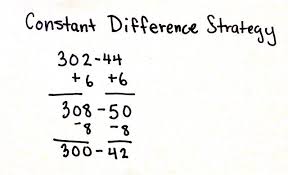 Constant Difference Strategy
302-44
+6 +6
308-50
-8 -8
300-42